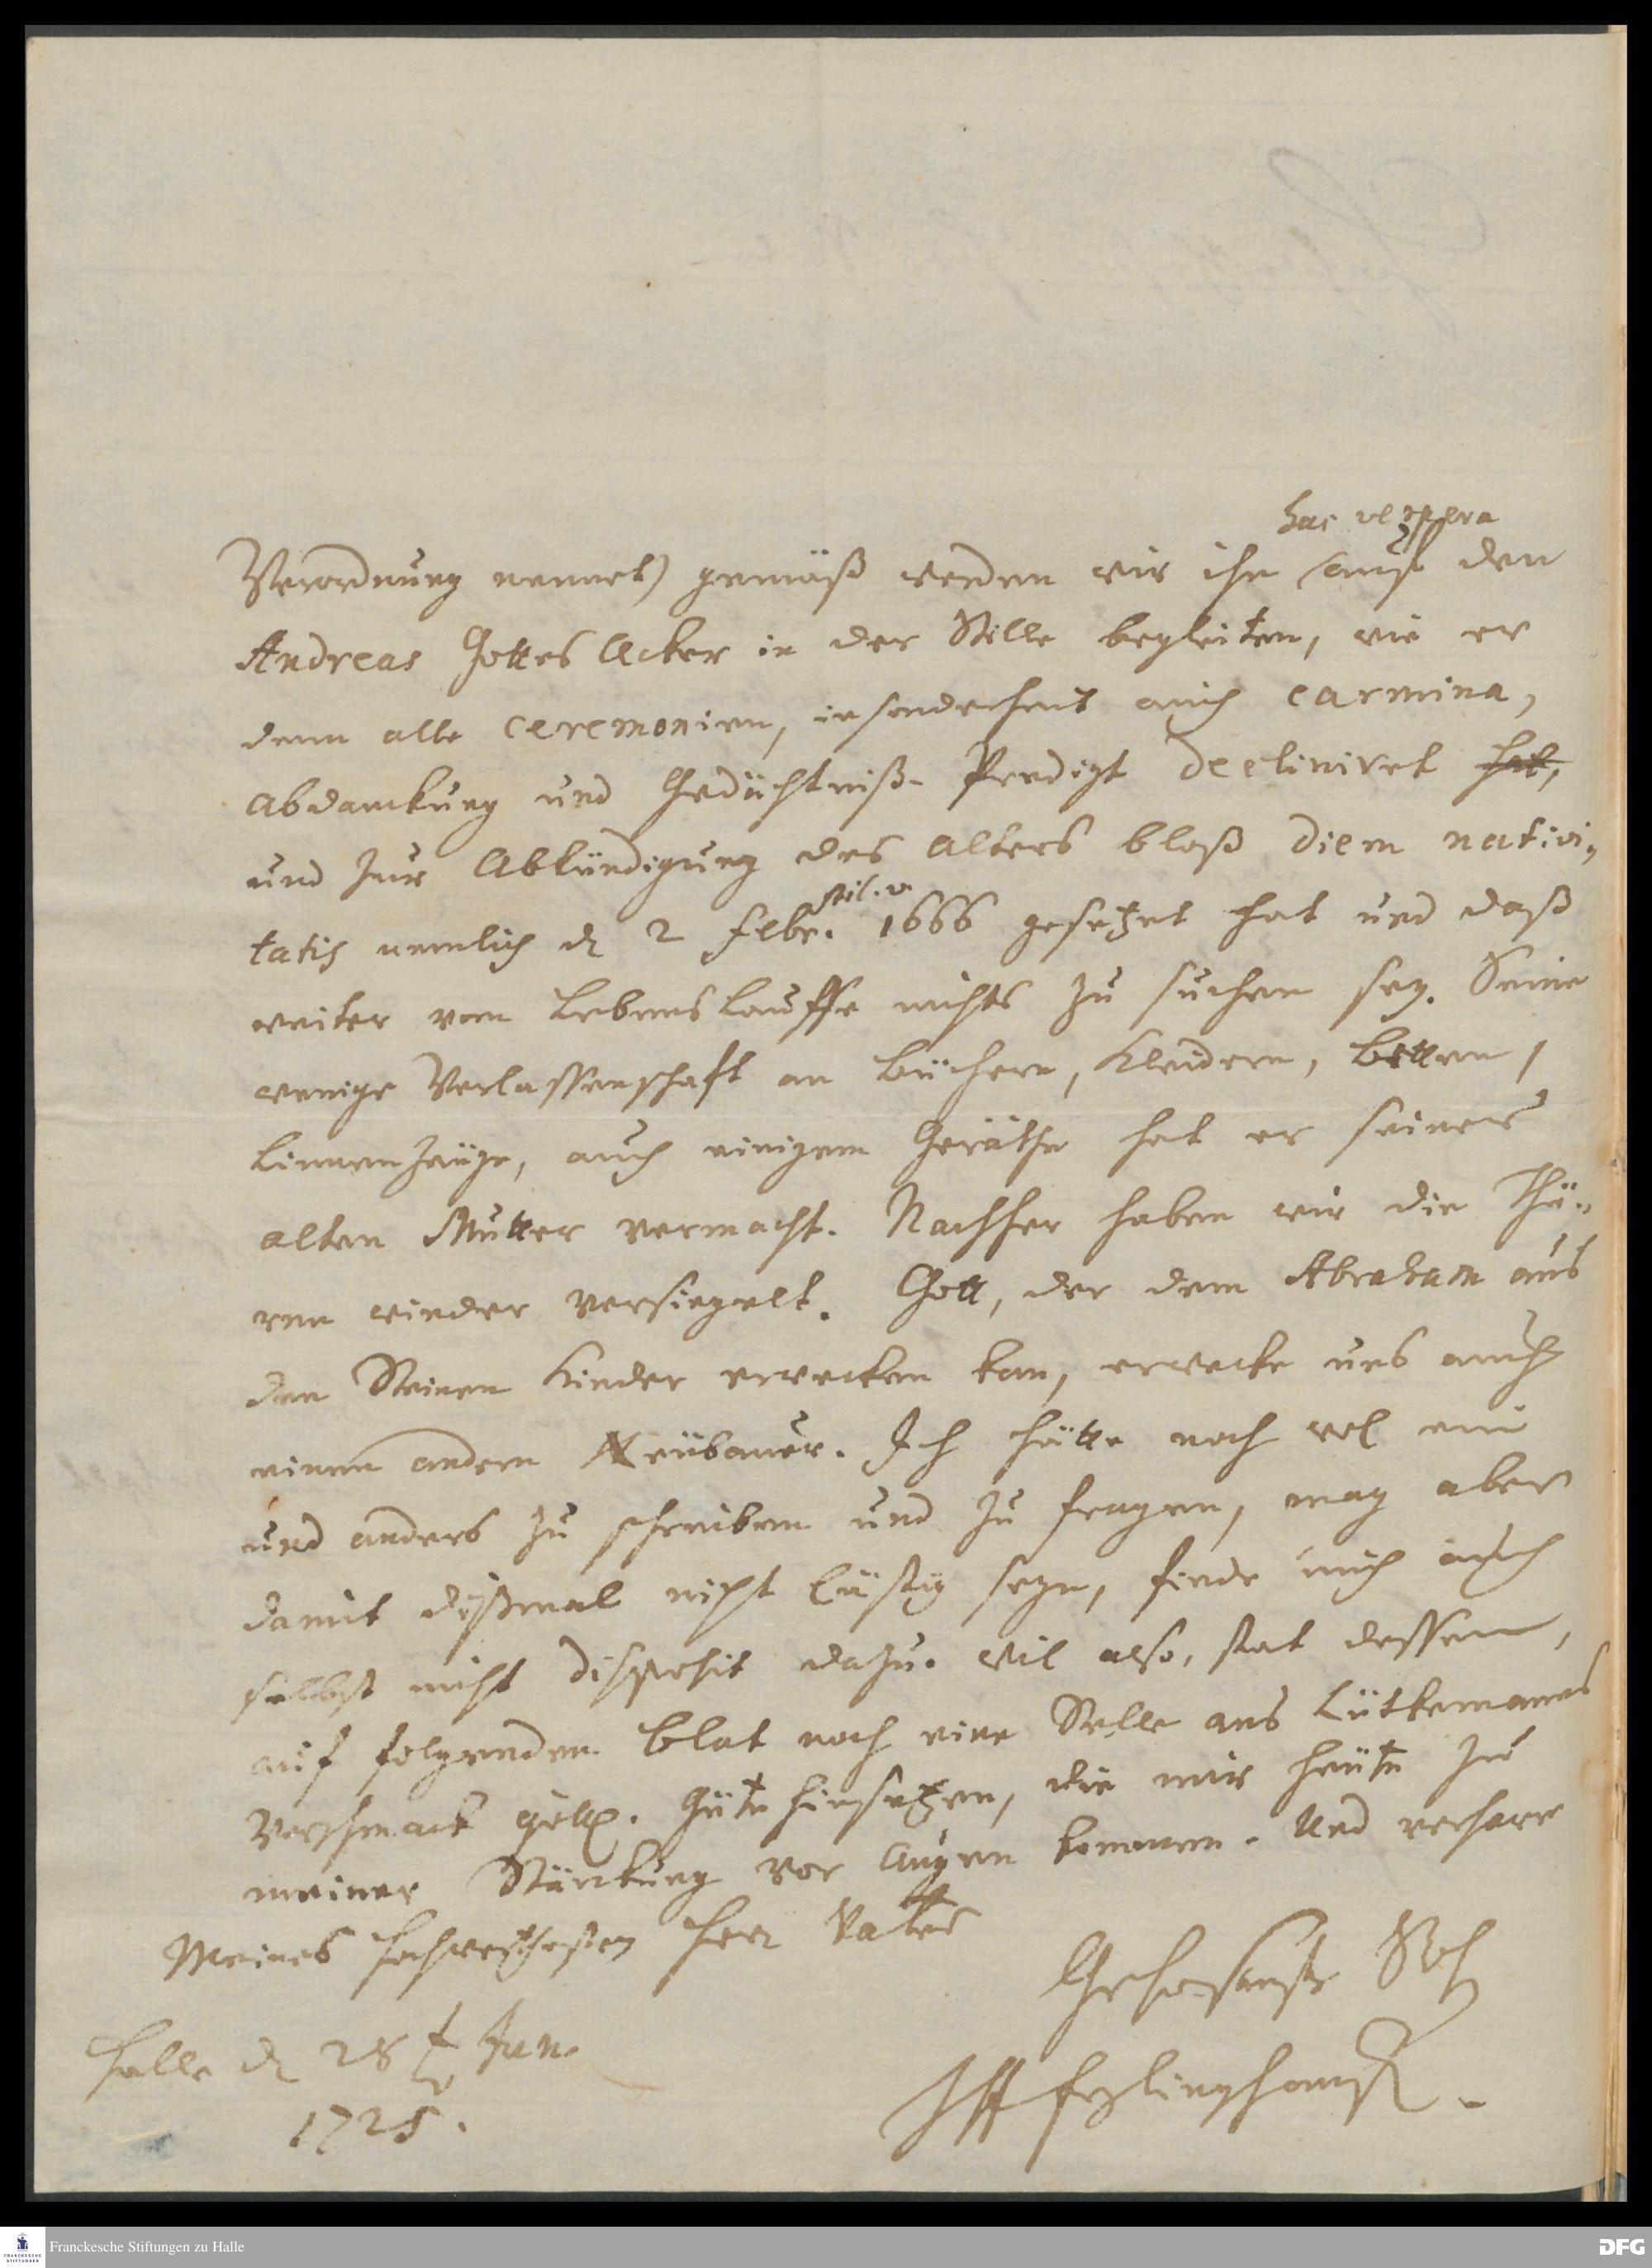 hac vespera
Verordnung nennet) gemäß werden wir ihn auf den
Andreas Gottes Acker in der Stille begleiten, wie er
denn alle ceremonien, insonderheit auch carmina,
Abdanckung und Gedächtniß-Predigt decliniret hat,
und zur Abkündigung des Alters bloß diem nativi-
stil. v.
tatis nemlich d 2 Febr. 1666 gesetzet hat und daß
weiter vom Lebenslauffe nichts zu suchen sey. Seine
wenige Verlassenschaft an Büchern, Kleidern, Betten,
Linnenzeuge, auch einigem Geräthe hat er seiner
alten Mutter vermacht. Nachher haben wir die Thü-
ren wieder versiegelt. Gott, der dem Abraham aus
den Steinen Kinder erwecken kan, erwecke uns auch
einen andern Neubauer. Ich hätte noch wol ein
und anders zu schreiben und zu fragen, mag aber
damit dißmal nicht lästig seyn, finde mich auch
selbst nicht disposit dazu. Wil also, stat dessen,
auf folgenden Blat noch eine Stelle aus Lütkemanns
Vorschmack göttl. Güte hinsetzen, die mir heüte zu
meiner Stärckung vor Augen kommen. Und verharre
Meines hochwerthesten Herrn Vaters
Gehorsamster Sohn
Halle d 28 Jun.
1725.
JAFreylinghausen.
Franckesche Stiftungen zu Halle
FRANCKESCHE STIFTUNGEN
DFG